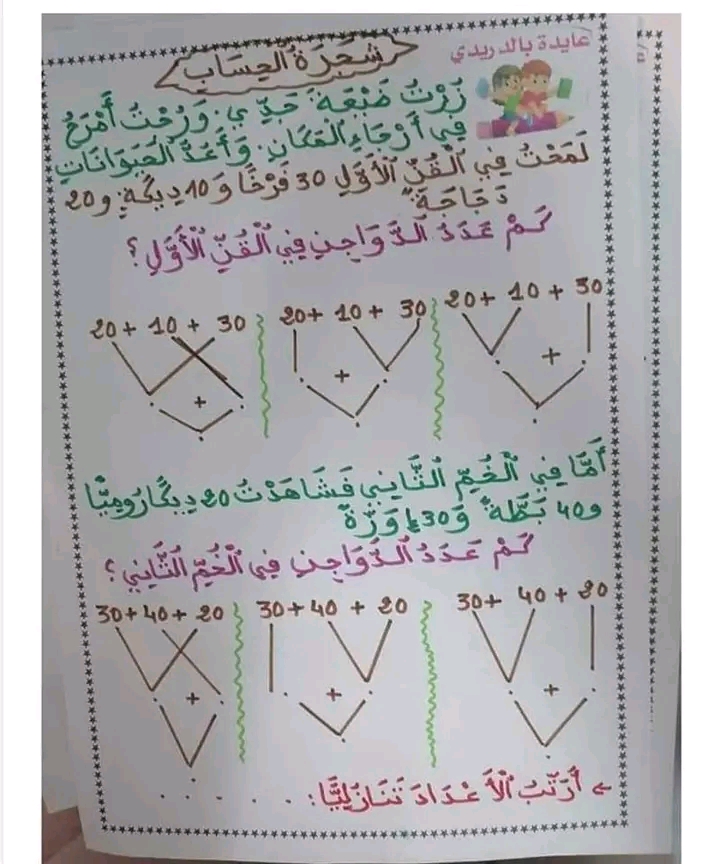 عايدة بالدريدي
شَجَرَةُ الْحِسَابِ
زُرْتُ ضَيْعَةَ جَدِّي. وَرُحْتُ أَمْرَحُ
فِي أَرْجَاءِ الْمَكَانِ. وَأَعُدُّ الْحَيَوَانَاتِ
لَمَحْتُ فِي الْقُنِّ الْأَوَّلِ 30 فَرْخًا وَ 10 دِيَكَةٍ و 20
دَجَاجَةً
كَمْ عَدَدُ الدَّوَاجِنِ فِي الْقُنِّ الْأَوَّلِ؟
20 + 10 + 30
+
20 + 10 + 30
+
20 + 10 + 30
+
أَمَّا فِي الْخُمِّ الثَّانِي فَشَاهَدْتُ 20 دِيكًا رُومِيًّا
و 40 بَطَّةً وَ 30 إِوَزَّةً
كَمْ عَدَدُ الدَّوَاجِنِ فِي الْخُمِّ الثَّانِي؟
30 + 40 + 20
+
30 + 40 + 20
+
30 + 40 + 20
+
← أُرَتِّبُ الْأَعْدَادَ تَنَازُلِيًّا: . . . . . .